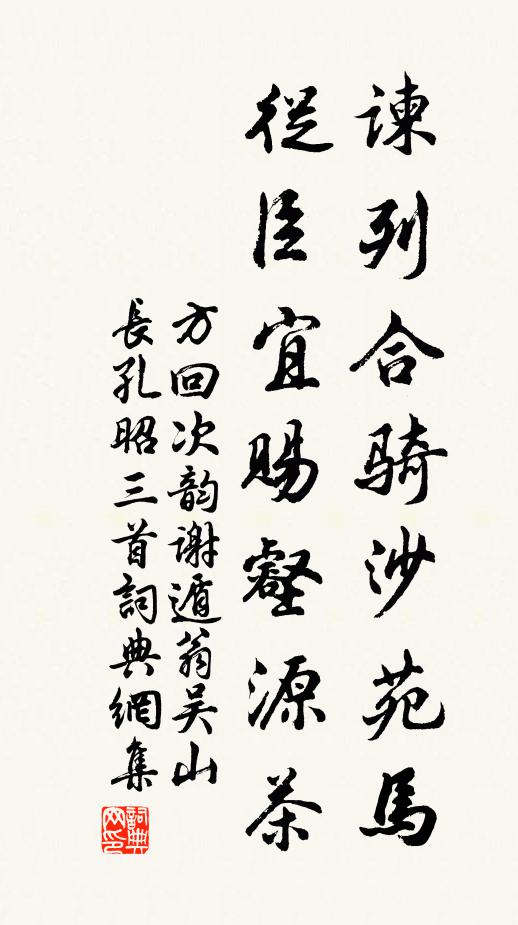 諫列合騎沙苑馬
從臣宜賜壑源茶
方回次韵謝遁翁吴山
長孔昭三首詞典網集
詞典网印